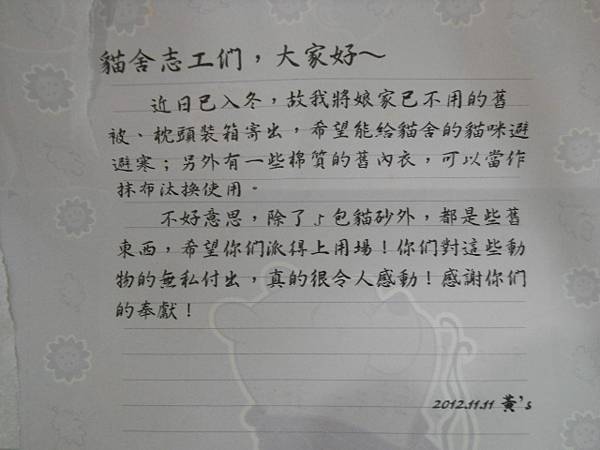 貓舍志工们，大家好～
近日已入冬，故我將娘家已不用的舊
被、枕頭裝箱寄出，希望能給貓舍的貓咪避
避寒；另外有一些棉質的舊內衣，可以當作
抹布汰換使用。
不好意思，除了5包貓砂外，都是些舊
東西，希望你们派得上用場！你们對這些動
物的無私付出，真的很令人感動！感謝你们
的奉獻！
2012.11.11 黃's